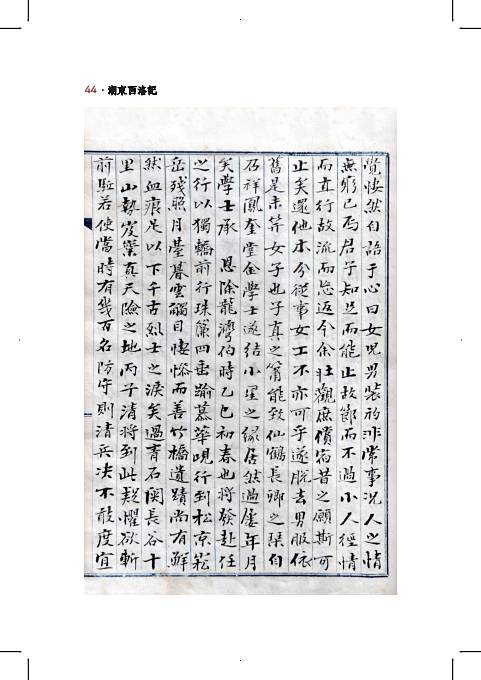 44 · 湖東西洛記
覺悽然自語于心曰女兒男裝的非常事況人之情
無窮已焉君子知足而能止故節而不過小人徑情
而直行故流而忘返今余壯觀庶償宿昔之願斯可
止矣還他本分從事女工不亦可乎遂脫去男服依
舊是未笄女子也子真之簫能致仙鶴長卿之琹自
乃祥鳳奎堂金學士遂結小星之緣居然過屢年月
矣學士承 恩除龍灣伯時乙巳初春也將發赴任
之行以獨轎前行珠簾四垂踰慕華峴行到松京崧
岳殘照月臺暮雲觸目悽慘而善竹橋遺蹟尚有鮮
然血痕足以下千古烈士之淚矣過青石関長谷十
里山勢岌嶪真天險之地丙子清將到此疑懼欲斬
前駈若使當時有幾百名防守則清兵决不敢度宜